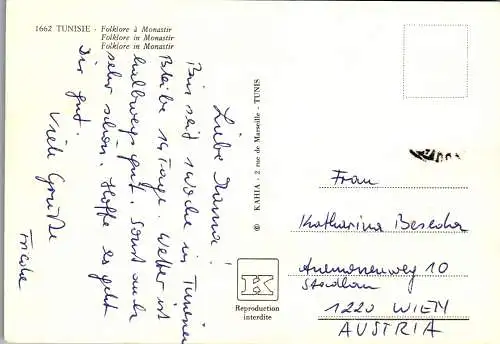 1662 TUNISIE - Folklore à Monastir
Folklore in Monastir
Folklore in Monastir
Liebe Mama!
Bin seit 1 Woche in Tunesien
Bleibe 14 Tage. Wetter ist
halbwegs gut. Sonst auch
sehr schön. Hoffe es geht
Dir gut.
Viele Grüße
Friede
© KAHIA - 2 rue de Marseille - TUNIS
Reproduction
interdite
Frau
Katharina
Anemonenweg 10
Stadlau
1220 WIEN
AUSTRIA